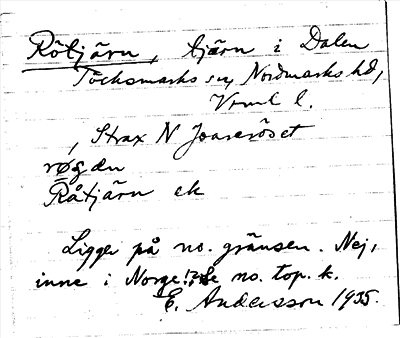 Rötjärn, tjärn i Dalen
Töcksmarks sn, Nordmarks hd,
Vrml l.
, Strax N Joarsröset
røgdn
Råtjärn ek
Ligger på no. gränsen. Nej,
inne i Norge!? Se no. top. k.
E. Andersson 1935.